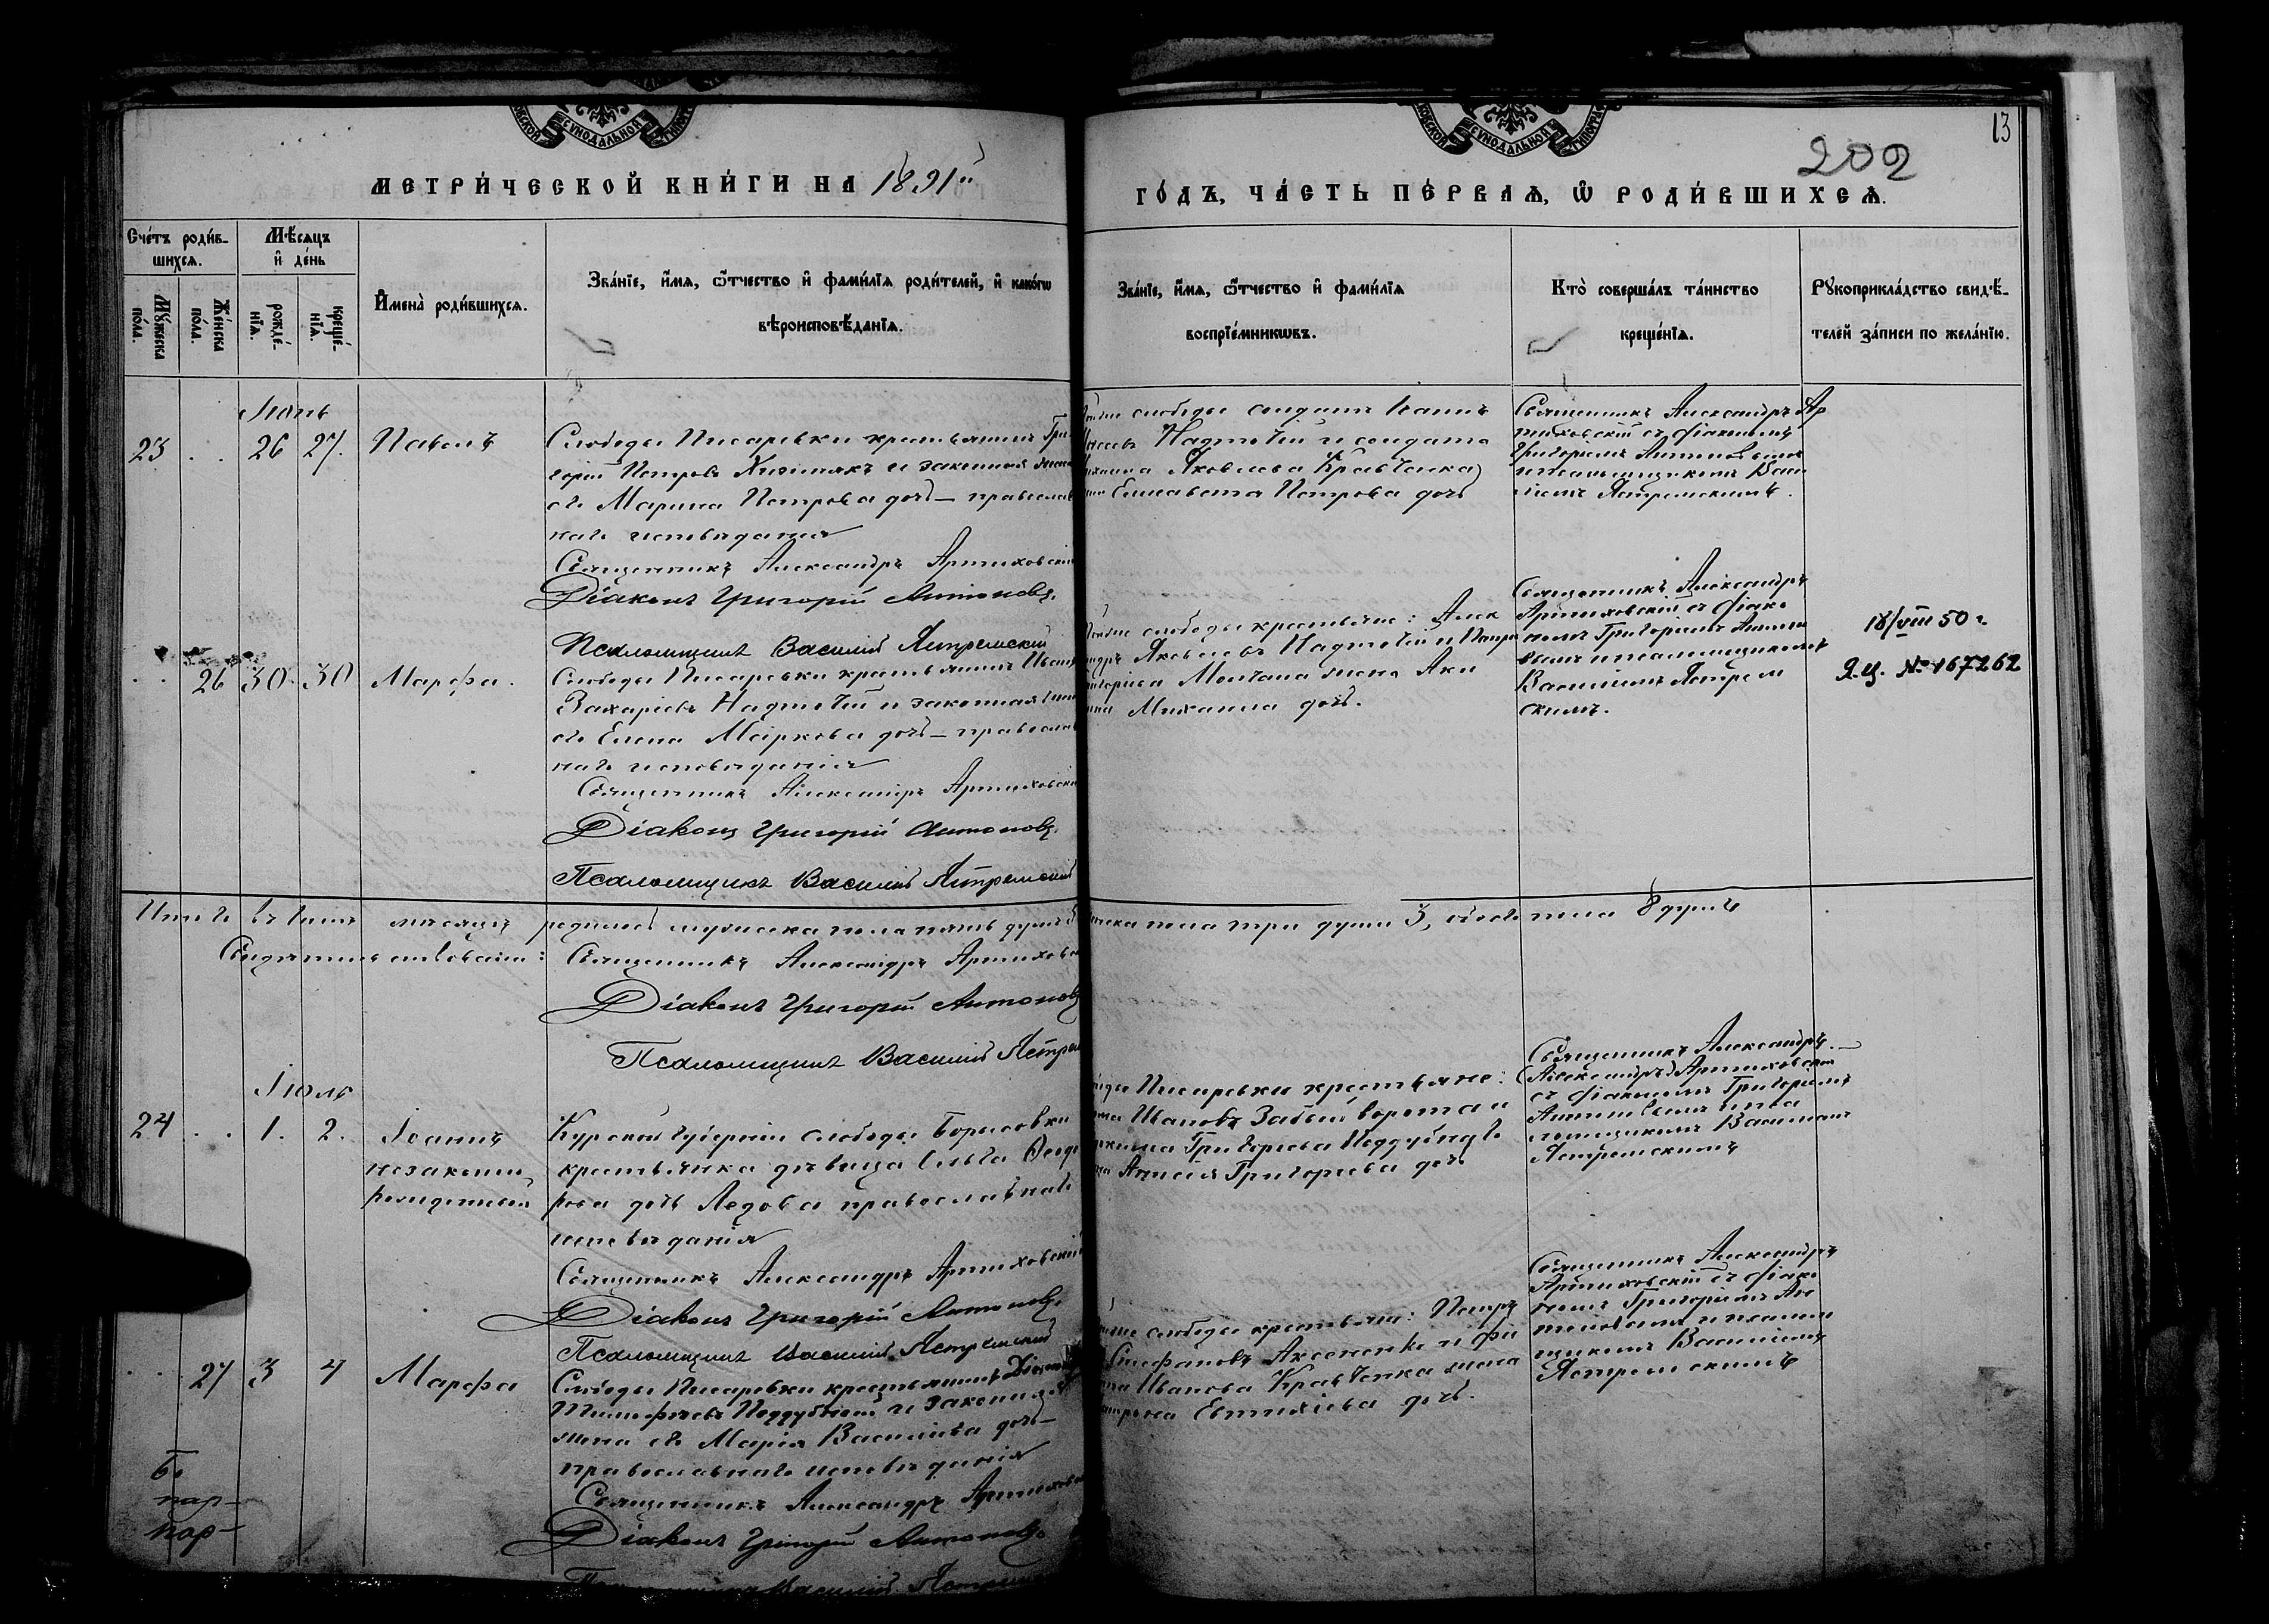 СѴНОДАЛЬНОЙ
СѴНОДАЛЬНОЙ
13
202
МЕТРИ́ЧЕСКОЙ КНИ́ГИ НА 1891й
ГО́ДЪ, ЧА́СТЬ ПЕ́РВАѦ, Ѡ РОДИ́ВШИХСѦ.
Счéтъ роди́в-
шихсѧ.
Мѣ́сѧцъ
и҆ де́нь
Мꙋ́жеска
по́ла.
Же́нска
по́ла.
рожде́-
нїѧ.
креще́-
нїѧ.
И҆мена̀ роди́вшихсѧ.
Зва́нїе, и҆́мѧ, ѻ҆́тчество и҆ фами́лїѧ роди́телей, и҆ како́гѡ
вѣроисповѣ́данїѧ.
Зва́нїе, и҆́мѧ, ѻ҆́тчество и҆ фами́лїѧ
воспрїе́мникѡвъ.
Кто̀ соверша́лъ та́инство
креще́нїѧ.
Рꙋкоприкла́дство свидѣ́-
телей за́писи по жела́нїю.
Іюнь
23 . . 26 27. Павелъ
Слободы Писаревки крестьянинъ Гри
горій Петровъ и законная жена
его Марина Петрова дочь – православ
наго исповѣданія
Священникъ Александръ Артюховскій
Діаконъ Григорій Антоновъ.
Псаломщикъ Василій Ястремскій
слободы солдатъ Іоаннъ
Надточій и солдата
Яковлева Кравченка
Елисавета Петрова дочь
Священникъ Александръ Ар
тюховскій съ діакономъ
Григоріемъ Антоновымъ
и псаломщикомъ Васи
ліемъ Ястремскимъ.
. . 26 30. 30 Марфа.
Слободы Писаревки крестьянинъ Иванъ
Захаріевъ Надточій и законная жена
его Елена Маркова дочь – православ
наго исповѣданія
Священникъ Александръ Артюховскій
Діаконъ Григорій Антоновъ.
Псаломщикъ Василій Ястремскій
слободы крестьяне: Алек
Яковлевъ Надточій и
Молчана жена Аки
Михаила дочь.
Священникъ Александръ
Артюховскій съ діако
номъ Григоріемъ Антоно
вымъ и псаломщикомъ
Василіемъ Ястрем
скимъ.
18/VIII 50 г
Я.Ц. № 167262
Итого въ Іюнѣ мѣсяцѣ родилось мужеска пола пять душъ 5
пола три души 3, обоего пола 8 душъ
Свидѣтельствовали: Священникъ Александръ Артюховскій
Діаконъ Григорій Антоновъ
Псаломщикъ Василій Ястрем
Іюль
24 . . 1. 2. Іоаннъ
незаконно
рожденный
Курской губерніи слободы Борисовки
крестьянка дѣвица Ольга Ѳеодо
рова дочь Ледова православнаго
исповѣданія
Священникъ Александръ Артюховскій
Діаконъ Григорій Антоновъ.
Псаломщикъ Василій Ястремскій
Писаревки крестьяне:
Ивановъ Забейворота и
Григорьева Поддубнаго
Григорьева дочь
Священникъ Александръ
(Александръ) Артюховскій
съ діакономъ Григоріемъ
Антоновымъ и пса
ломщикомъ Василіемъ
Ястремскимъ
. . 27 3 4 Марфа
Слободы Писаревки крестьянинъ
Тимофеевъ Поддубный и законная
жена его Марія Васильева дочь –
православнаго исповѣданія
Священникъ Александръ Артюховскій
Діаконъ Григорій Антоновъ.
Василій Ястрем
слободы крестьяне: Петръ
Стефановъ Аксененко и
Иванова Кравченка жена
Евтихіева дочь.
Священникъ Александръ
Артюховскій съ діако
номъ Григоріемъ Ан
тоновымъ и псалом
щикомъ Василіемъ
Ястремскимъ